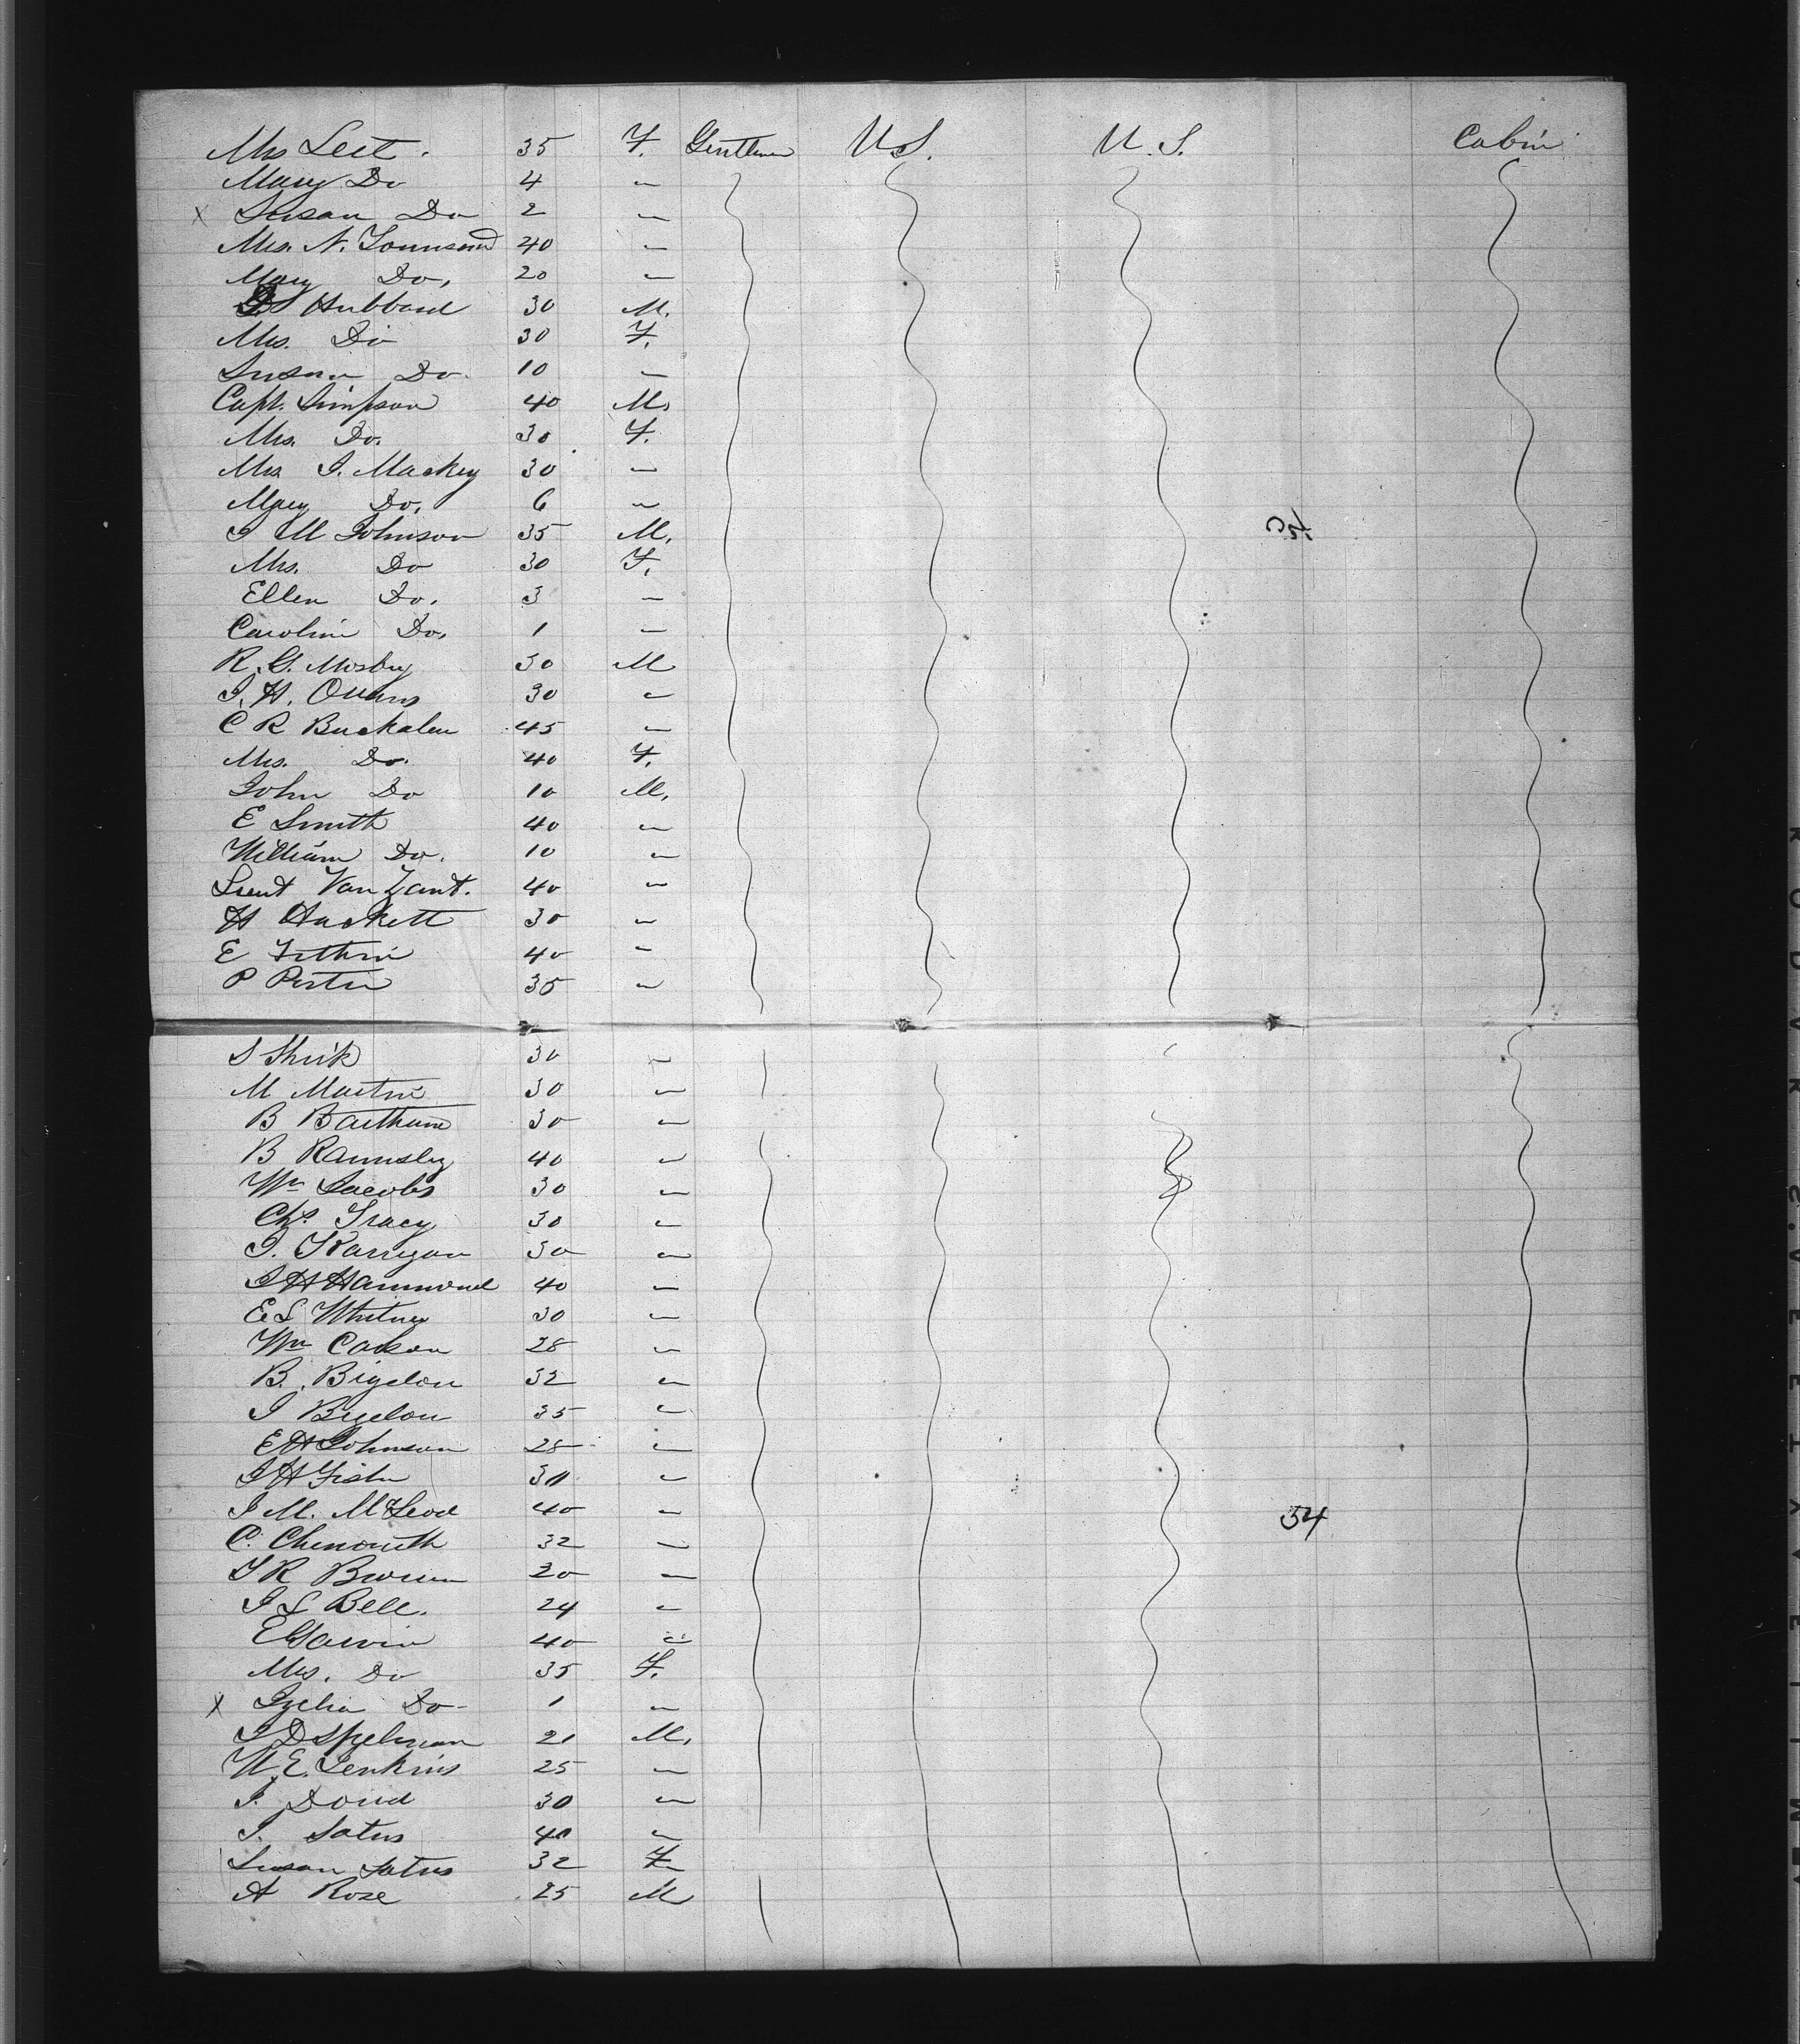 Mrs Leet. 35 F. Gentlemen U.S. U.S. Cabin
Mary Do 4 "
x Susan Do 2 "
Mrs. N. Townsend 40 "
Mary Do, 20 "
S Hubbard 30 M.
Mrs. Do 30 F.
Susan Do. 10 "
Capt. Simpson 40 M.
Mrs. Do. 30 F.
Mrs J. Mackey 30 "
Mary Do. 6 "
J M Johnson 35 M.
Mrs. Do 30 F.
Ellen Do. 3 "
Caroline Do, 1 "
R. G. Mosby 30 M
J. H. Owens 30 "
C R Buckalew 45 "
Mrs. Do. 40 F.
John Do 10 M.
E Smith 40 "
William Do. 10 "
Lieut Van Zant. 40 "
H Hackett 30 "
E 40 "
P Porter 35 "
S Shirk 30 "
M Martin 30 "
B 30 "
B 40 "
Wm Jacobs 30 "
Chs. Tracy 30 "
J. 30 "
J H Hammond 40 "
E S Whitney 30 "
Wm Carson 28 "
B. Bigelow 32 "
J Bigelow 35 "
E H Johnson 28 "
J H Fisher 30 "
J M. McLeod 40 "
54
C. Chenowith 32 "
T R Brown 20 "
J S Bell. 24 "
E Garvin 40 "
Mrs. Do 35 F.
x Do 1 "
J D Spelman 21 M.
W. E. Jenkins 25 "
J. Doud 30 "
J. 40 "
Susan 32 F
A Rose 25 M